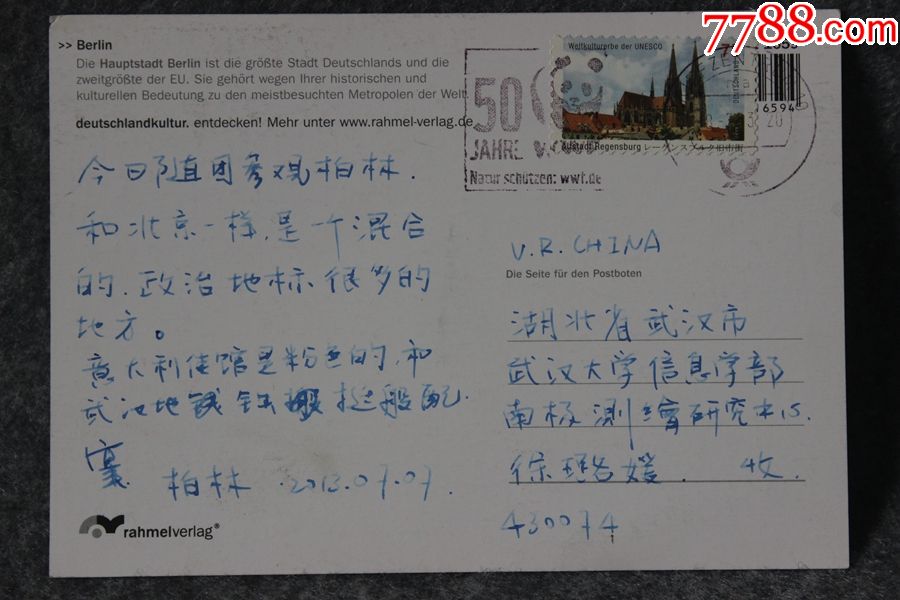 7788.com
>> Berlin
Die Hauptstadt Berlin ist die größte Stadt Deutschlands und die
zweitgrößte der EU. Sie gehört wegen Ihrer historischen und
kulturellen Bedeutung zu den meistbesuchten Metropolen der Welt.
deutschlandkultur. entdecken! Mehr unter www.rahmel-verlag.de
50
JAHRE
Natur schützen: wwf.de
Weltkulturerbe der UNESCO
DEUTSCHLAND
Altstadt Regensburg レーゲンスブルク旧市街
6594
20
今日随团参观柏林.
和北京一样,是一个混合
的.政治地标很多的
地方。
意大利使馆是粉色的,和
武汉地铁挺般配.
柏林 2013.07.07.
rahmelverlag®
V.R.CHINA
Die Seite für den Postboten
湖北省武汉市
武汉大学信息学部
南极测绘研究中心.
徐 媛. 收.
430074